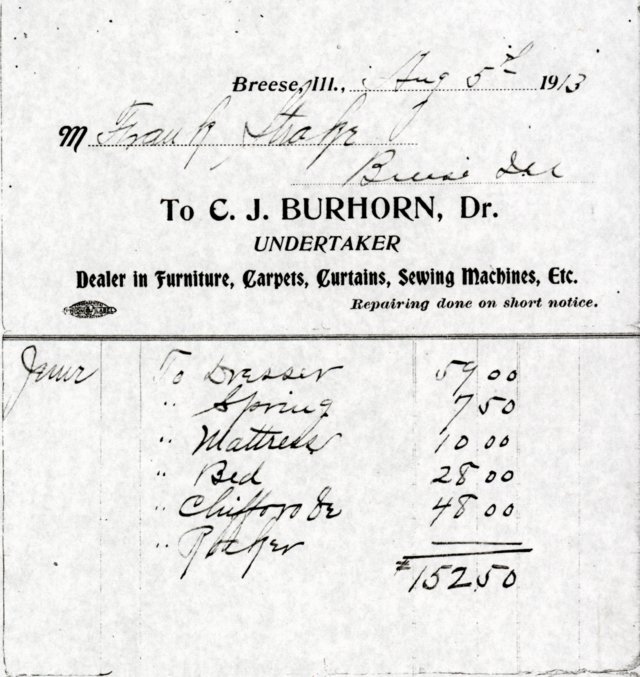 Breese, Ill., Aug 5th 1913
M Frank Strake
Breese Ill
To C. J. BURHORN, Dr.
UNDERTAKER
Dealer in Furniture, Carpets, Curtains, Sewing Machines, Etc.
Repairing done on short notice.
To Dresser 59 00
" Spring 7 50
" Mattress 10 00
" Bed 28 00
" Chifforobe 48 00
" Rocker
$152.50